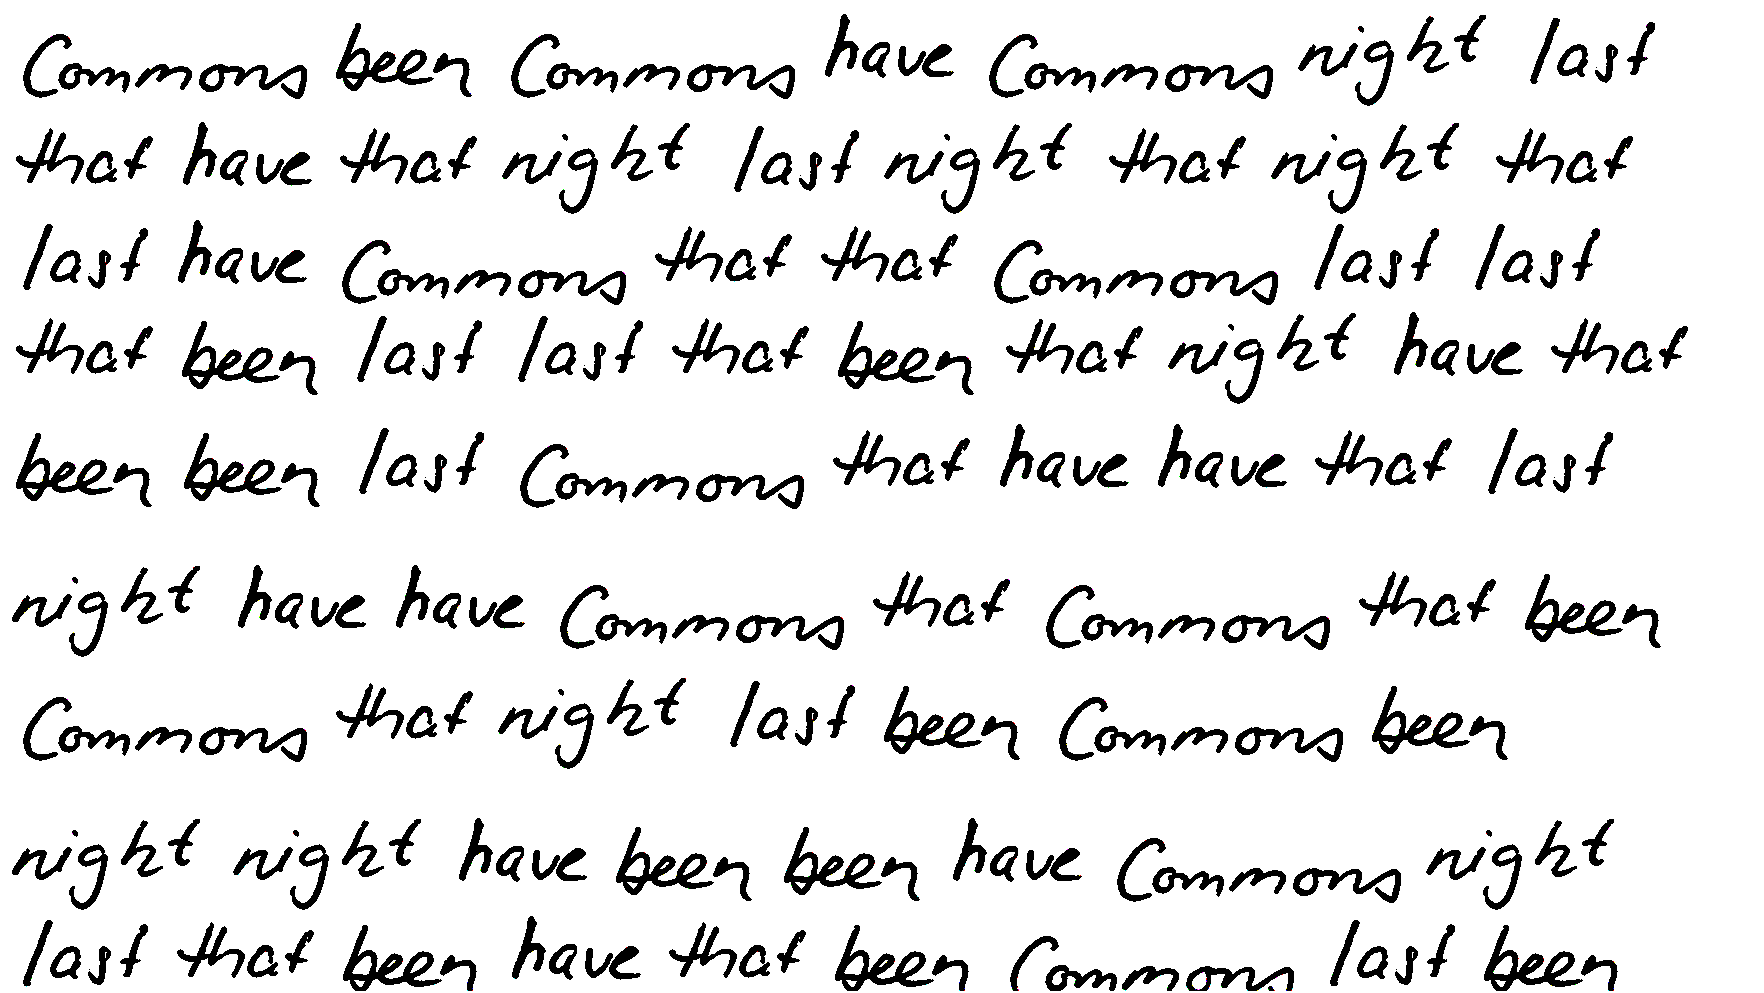 Commons been Commons have Commons night last
that have that night last night that night that
last have Commons that that Commons last last
that been last last that been that night have that
been been last Commons that have have that last
night have have Commons that Commons that been
Commons that night last been Commons been
night night have been been have Commons night
last that been have that been Commons last been